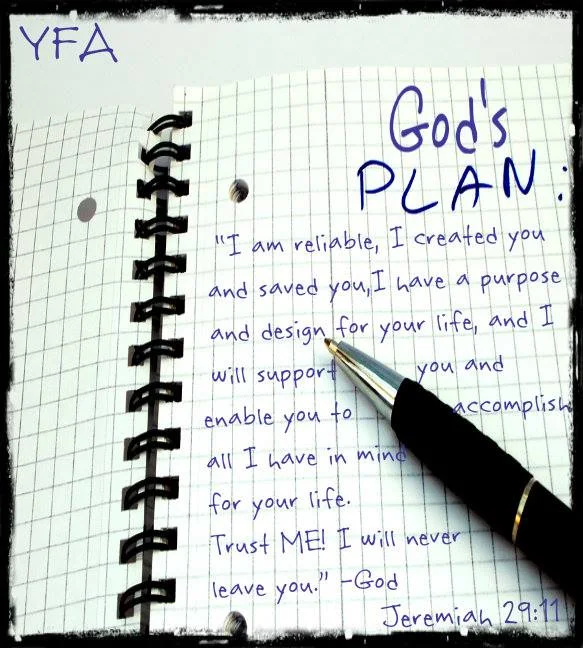 YFA
God's
PLAN:
"I am reliable, I created you
and saved you,I have a purpose
and design for your life, and I
will support you and
enable you to accomplish
all I have in mind
for your life.
Trust ME! I will never
leave you." -God
Jeremiah 29:11